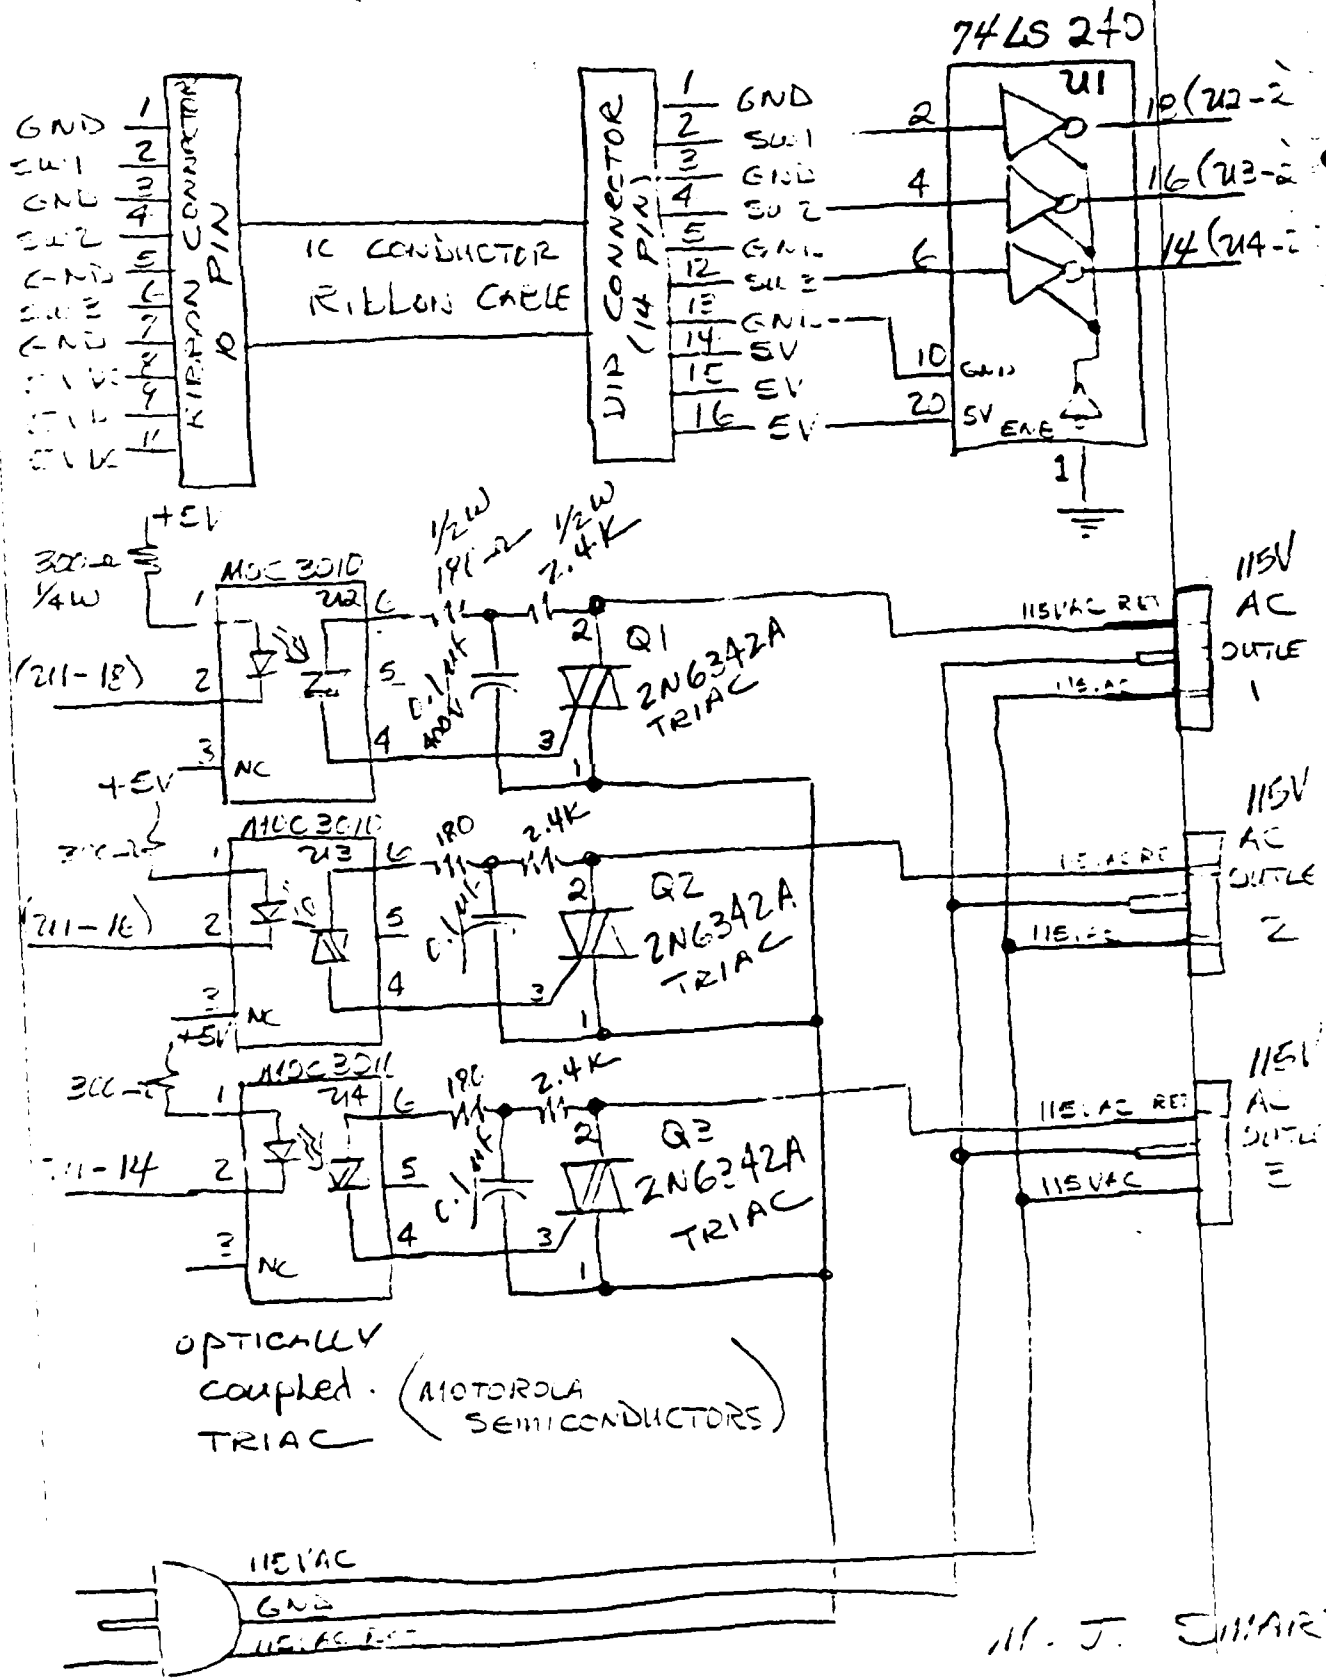 74LS240
U1
GND 1
SW1 2
GND 3
SW2 4
GND 5
SW3 6
GND 7
8
9
RIBBON CONNECTOR
10 PIN
CONDUCTOR
RIBBON CABLE
DIP CONNECTOR
(14 PIN)
1 GND
2 SW1
3 GND
4 SW2
5 GND
12 SW3
13 GND
14 5V
15 5V
16 5V
2
4
6
10 GND
20 5V
ENE
1
18 (U2-2
16 (U3-2
14 (U4-2
+5V
300Ω
1/4W
MOC 3010
U2
1
2
3 NC
6
5
4
(U1-18)
1/2W
180Ω
1/2W
2.4K
0.1uf
400V
2
3
1
Q1
2N6342A
TRIAC
115VAC RET
115VAC
115V
AC
OUTLE
1
+5V
300Ω
MOC 3010
U3
1
2
3 NC
6
5
4
(U1-16)
180
2.4K
0.1uf
2
3
1
Q2
2N6342A
TRIAC
115VAC RET
115VAC
115V
AC
OUTLE
2
+5V
300
MOC 3010
U4
1
2
3 NC
6
5
4
U1-14
180
2.4K
0.1uf
2
3
1
Q3
2N6342A
TRIAC
115VAC RET
115VAC
115V
AC
OUTLE
3
OPTICALLY
coupled.
TRIAC
(MOTOROLA
SEMICONDUCTORS)
115VAC
GND
115VAC RET
M. J. SMAR